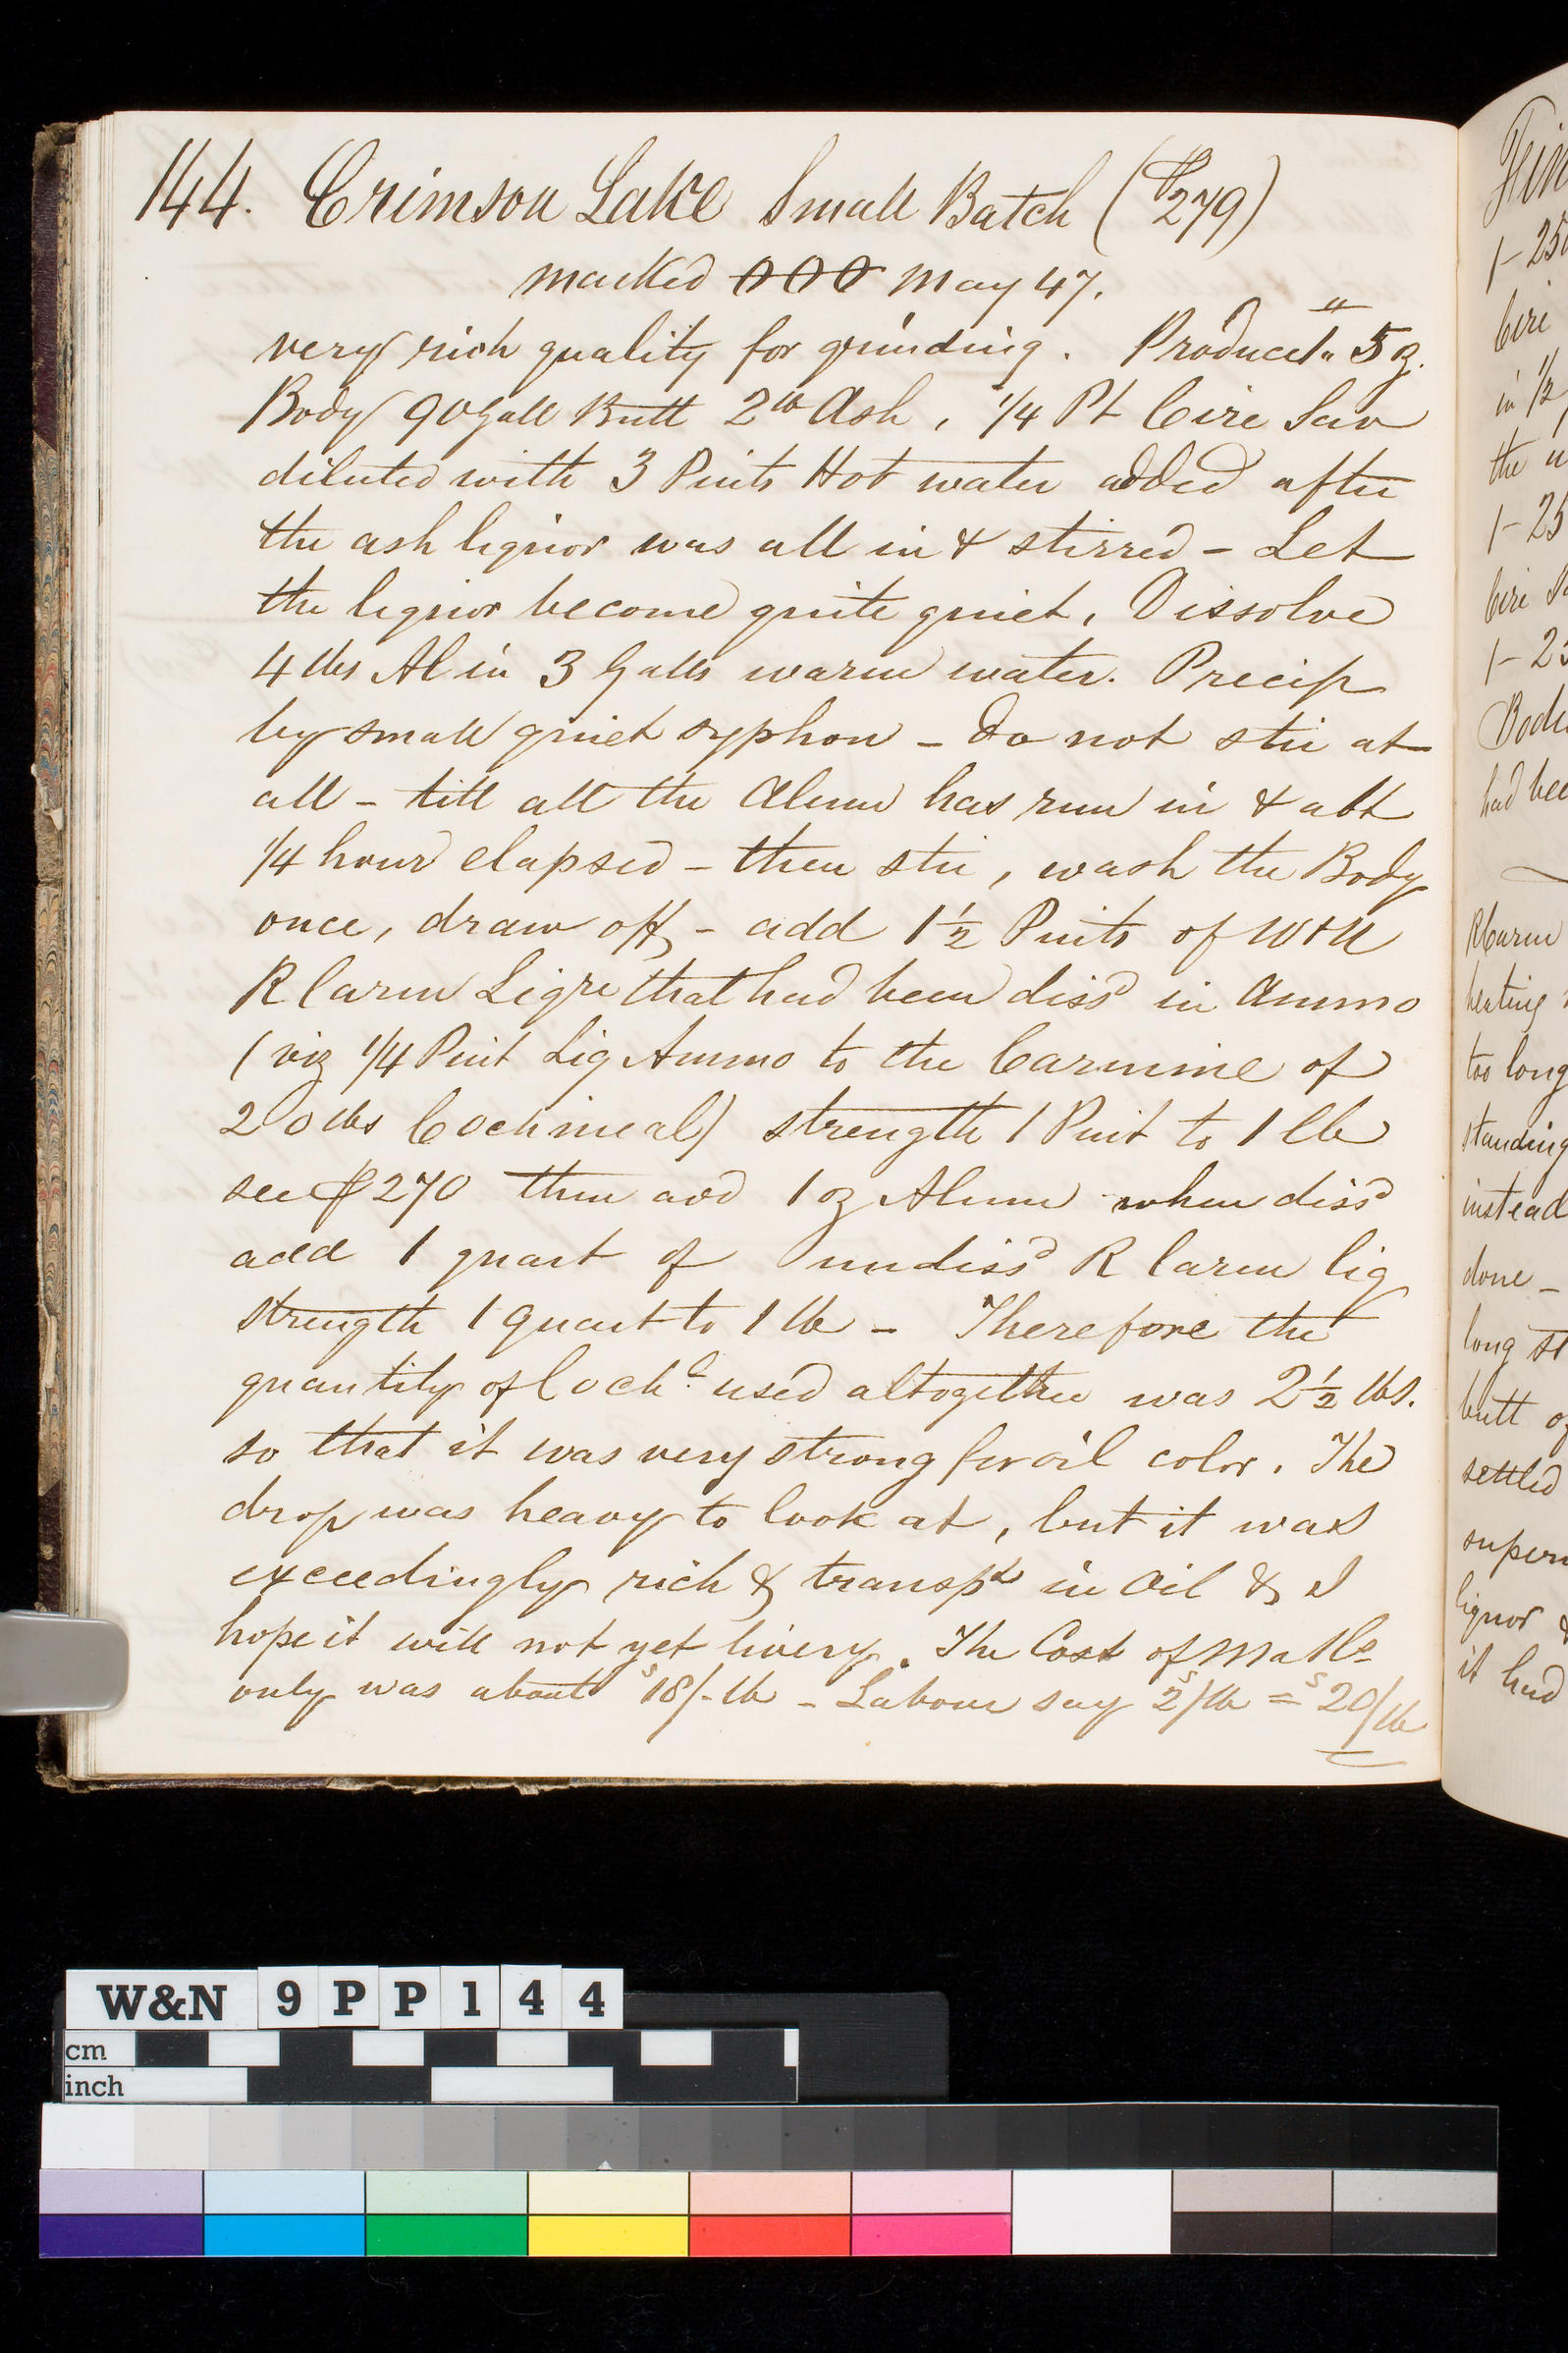 144. Crimson Lake Small Batch (P279)
marked 000 May 47.
very rich quality for grinding. Produce 1lb 5oz.
Body 90 Gall Butt 2lb Ash, 1/4 Pt Cire Sav
diluted with 3 Pints Hot water added after
the ash liquor was all in & stirred - Let
the liquor become quite quiet. Dissolve
4 lbs Al in 3 Galls warm water. Precip
by small quiet syphon - do not stir at
all - till all the Alum has run in & abt
1/4 hour elapsed - then stir, wash the Body
once, draw off, - add 1 1/2 Pints of W&N
R Carm Liqre that had been dissd in Ammo
(viz 1/4 Pint Liq Ammo to the Carmine of
20 lbs Cochineal) strength 1 Pint to 1 lb
see P270 then add 1 oz Alum when dissd
add 1 quart of undissd R Carm liq
strength 1 quart to 1 lb - Therefore the
quantity of Cochl used altogether was 2 1/2 lbs.
so that it was very strong for oil color. The
drop was heavy to look at, but it was
exceedingly rich & transpt in Oil & I
hope it will not yet livery. The Cost of Matls
only was about s18/- lb - Labour say s2/lb = s20/lb
Fin
1 - 25
Cire
in 1/2
the
1 - 25
Cire
1 - 2
had bee
R Carm
heating
too long
standing
instead
done -
long
butt
settled
liquor
it had
W&N 9PP144
cm
inch